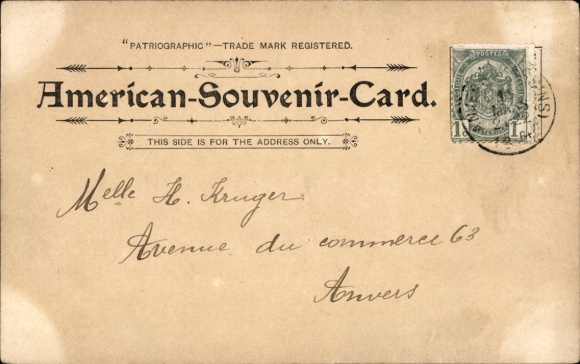 "PATRIOGRAPHIC"—TRADE MARK REGISTERED.
American-Souvenir-Card.
THIS SIDE IS FOR THE ADDRESS ONLY.
Melle H. Kruger
Avenue du commerce 63
Anvers